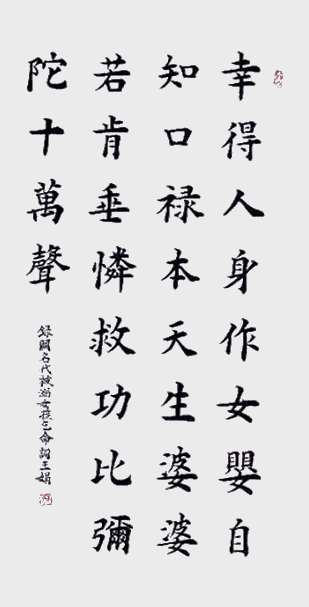 幸得人身作女嬰自
知口禄本天生婆婆
若肯垂憐救功比彌
陀十萬聲
録閩名代被溺女孩乞命詞王娟